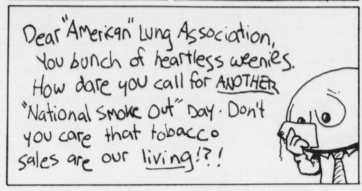 Dear "American" Lung Association,
You bunch of heartless weenies.
How dare you call for ANOTHER
"National Smoke Out" Day. Don't
you care that tobacco
sales are our living!?!